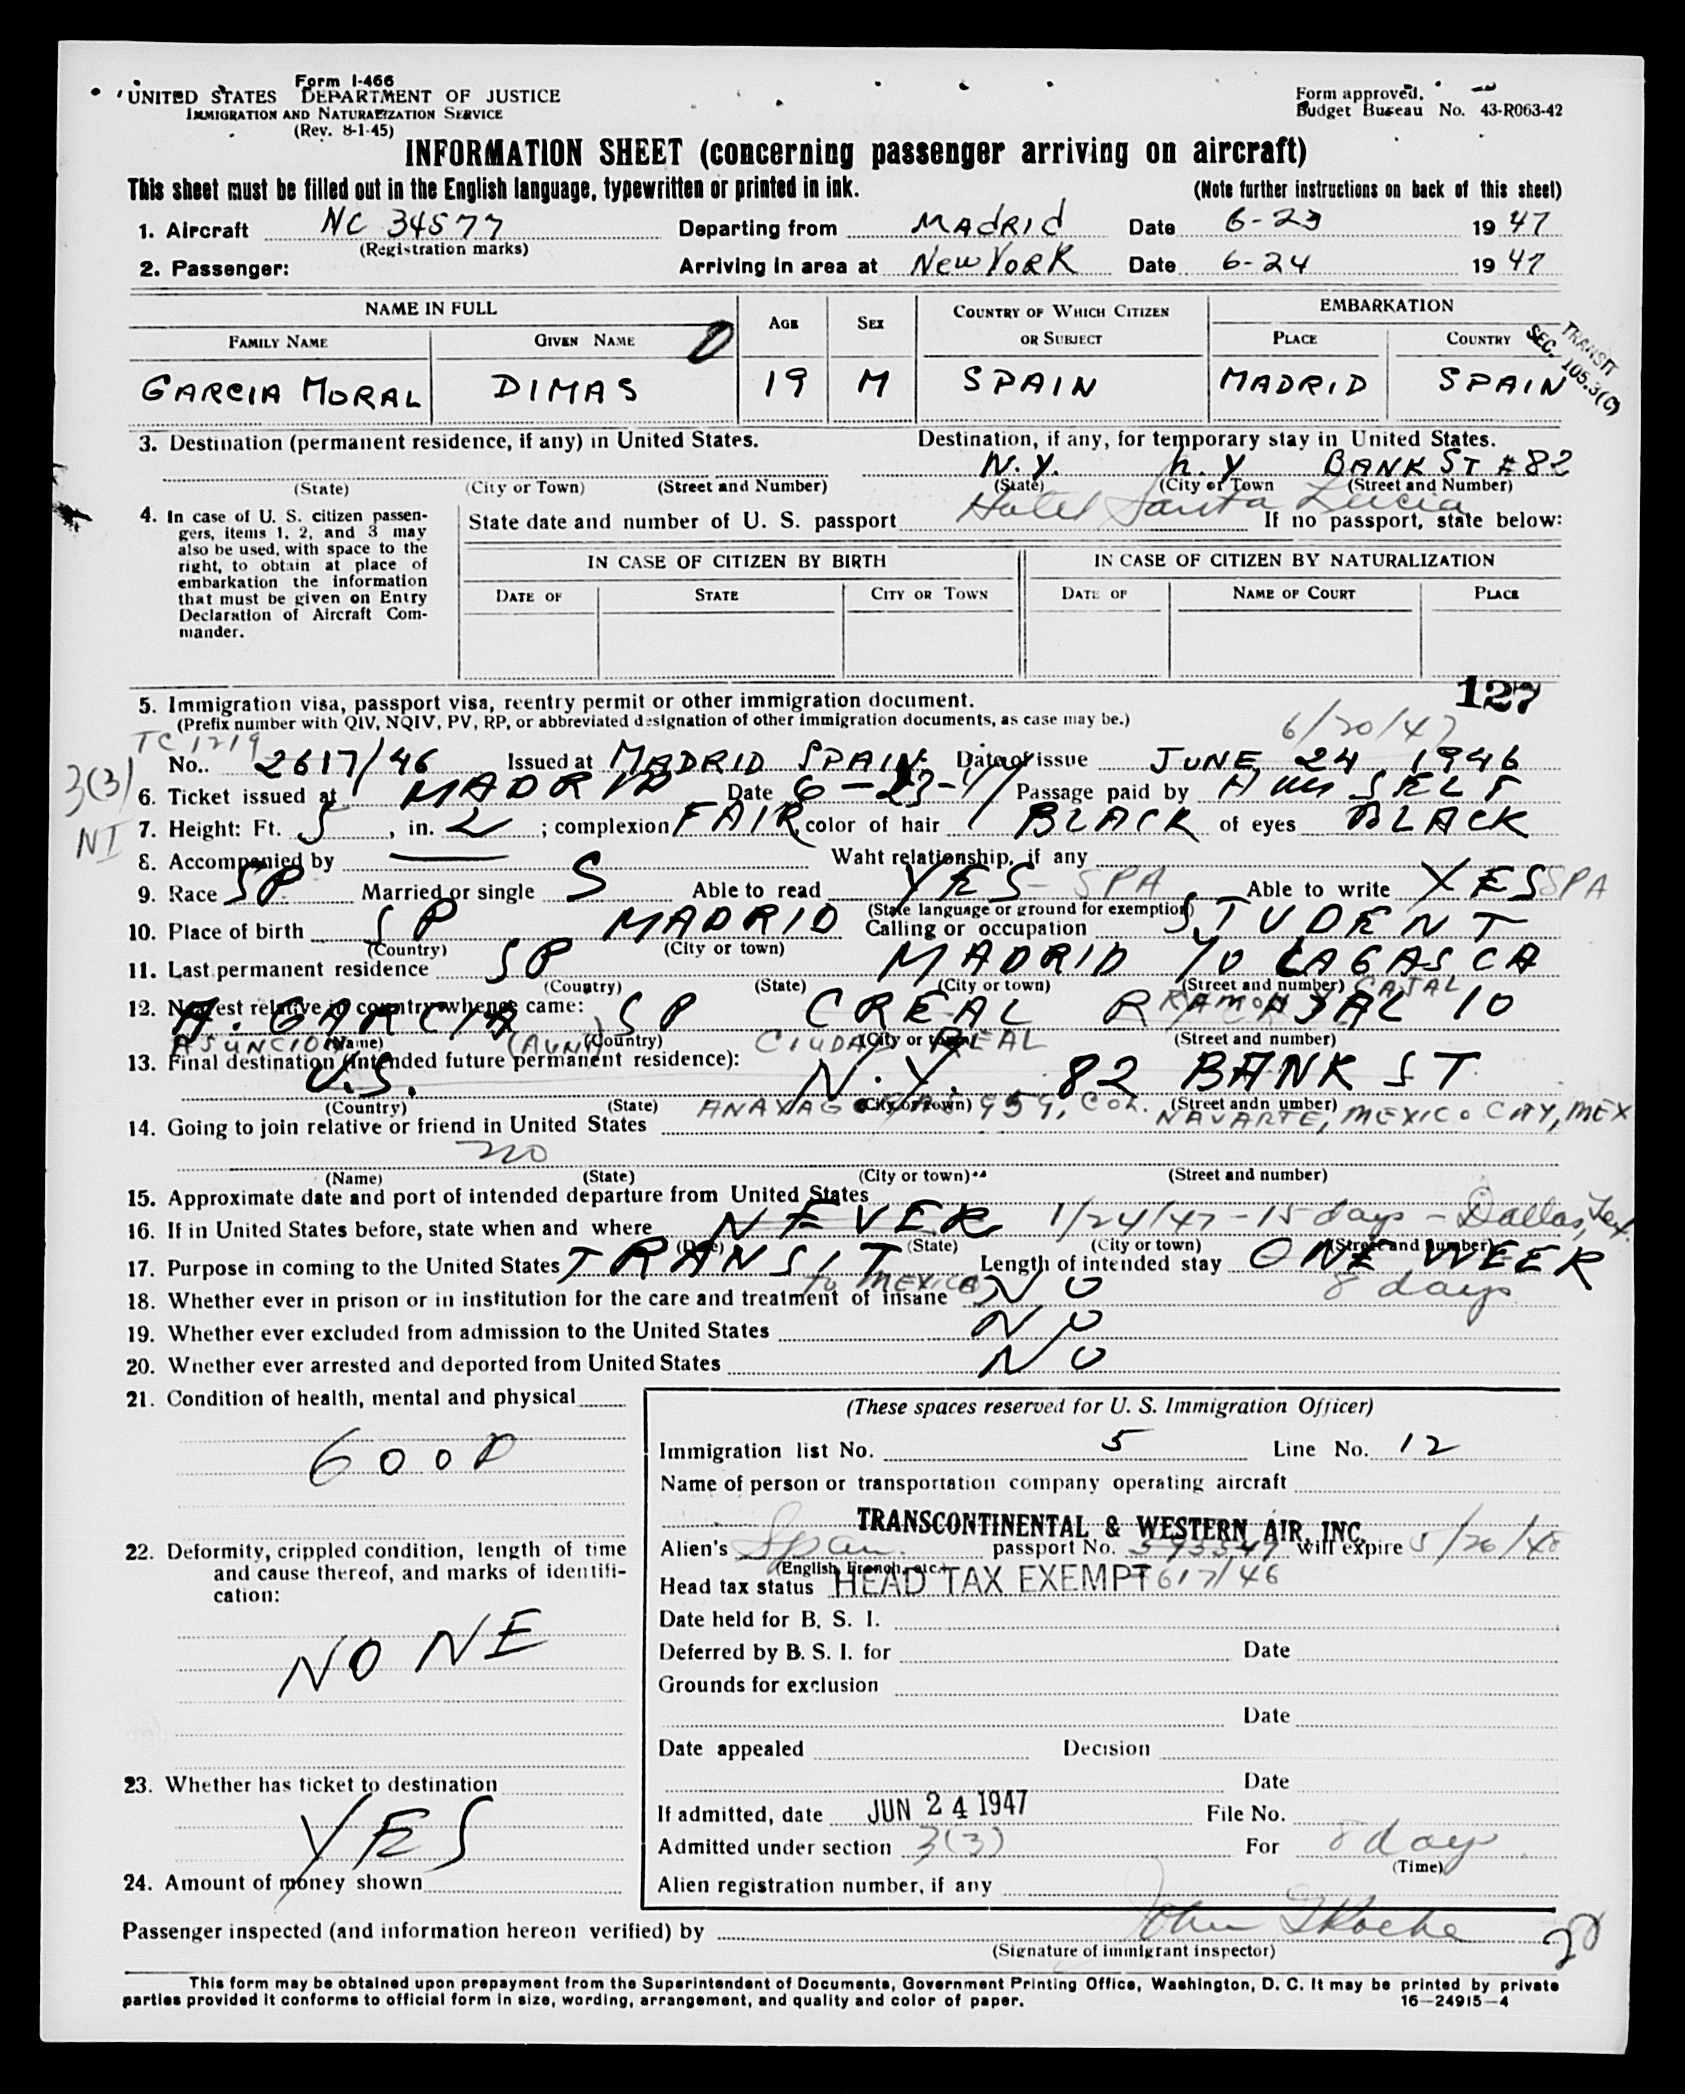 Form I-466
UNITED STATES DEPARTMENT OF JUSTICE
IMMIGRATION AND NATURALIZATION SERVICE
(Rev. 8-1-45)
Form approved.
Budget Bureau No. 43-R063-42
INFORMATION SHEET (concerning passenger arriving on aircraft)
This sheet must be filled out in the English language, typewritten or printed in ink.
(Note further instructions on back of this sheet)
1. Aircraft NC 34577 Departing from MADRID Date 6-23 1947
(Registration marks)
2. Passenger: Arriving in area at NEW YORK Date 6-24 1947
NAME IN FULL AGE SEX COUNTRY OF WHICH CITIZEN OR SUBJECT EMBARKATION
FAMILY NAME GIVEN NAME PLACE COUNTRY
TRANSIT
SEC. 105.3(C)
GARCIA MORAL DIMAS 19 M SPAIN MADRID SPAIN
3. Destination (permanent residence, if any) in United States. Destination, if any, for temporary stay in United States.
N.Y. N.Y BANK ST #82
(State) (City or Town) (Street and Number) (State) (City or Town (Street and Number)
Hotel Santa Lucia
4. In case of U. S. citizen passen-
gers, items 1, 2, and 3 may
also be used, with space to the
right, to obtain at place of
embarkation the information
that must be given on Entry
Declaration of Aircraft Com-
mander.
State date and number of U. S. passport If no passport, state below:
IN CASE OF CITIZEN BY BIRTH IN CASE OF CITIZEN BY NATURALIZATION
DATE OF STATE CITY OR TOWN DATE OF NAME OF COURT PLACE
127
5. Immigration visa, passport visa, reentry permit or other immigration document.
(Prefix number with QIV, NQIV, PV, RP, or abbreviated designation of other immigration documents, as case may be.)
TC 1219 6/20/47
No.. 2617/46 Issued at MADRID SPAIN Date of issue JUNE 24 1946
3(3)
NI
6. Ticket issued at MADRID Date 6-23-47 Passage paid by HIMSELF
7. Height: Ft. 5, in. 2; complexion FAIR, color of hair BLACK of eyes BLACK
8. Accompanied by — Waht relationship, if any
9. Race SP. Married or single S Able to read YES - SPA Able to write YES SPA
(State language or ground for exemption)
10. Place of birth SP MADRID Calling or occupation STUDENT
(Country) (City or town)
11. Last permanent residence SP MADRID 70 LAGASCA
(Country) (State) (City or town) (Street and number)
12. Nearest relative in country whence came:
A. GARCIA SP CREAL R CAJAL 10
RAMON CAJAL
(Name) (Country) (City or town) (Street and number)
ASUNCION (AUNT) CIUDAD REAL
13. Final destination (intended future permanent residence):
U.S. N.Y. 82 BANK ST
(Country) (State) (City or town) (Street andn umber)
ANAXAGORAS 959, COL. NAVARTE, MEXICO CITY, MEX
14. Going to join relative or friend in United States
no
(Name) (State) (City or town) (Street and number)
15. Approximate date and port of intended departure from United States
16. If in United States before, state when and where NEVER 1/24/47 - 15 days - Dallas, Tex.
(Date) (State) (City or town) (Street and number)
17. Purpose in coming to the United States TRANSIT Length of intended stay ONE WEEK
TO MEXICO 8 days
18. Whether ever in prison or in institution for the care and treatment of insane NO
19. Whether ever excluded from admission to the United States NO
20. Whether ever arrested and deported from United States NO
21. Condition of health, mental and physical
GOOD
22. Deformity, crippled condition, length of time
and cause thereof, and marks of identifi-
cation:
NONE
23. Whether has ticket to destination
YES
24. Amount of money shown
(These spaces reserved for U. S. Immigration Officer)
Immigration list No. 5 Line No. 12
Name of person or transportation company operating aircraft
TRANSCONTINENTAL & WESTERN AIR, INC.
Alien's Span. passport No. will expire 5/20/48
(English, French, etc.)
Head tax status HEAD TAX EXEMPT 2617/46
Date held for B. S. I.
Deferred by B. S. I. for Date
Grounds for exclusion
Date
Date appealed Decision
Date
If admitted, date JUN 24 1947 File No.
Admitted under section 3(3) For 8 days
(Time)
Alien registration number, if any
Passenger inspected (and information hereon verified) by John Roche
(Signature of immigrant inspector)
20
This form may be obtained upon prepayment from the Superintendent of Documents, Government Printing Office, Washington, D. C. It may be printed by private
parties provided it conforms to official form in size, wording, arrangement, and quality and color of paper.
16—24915—4